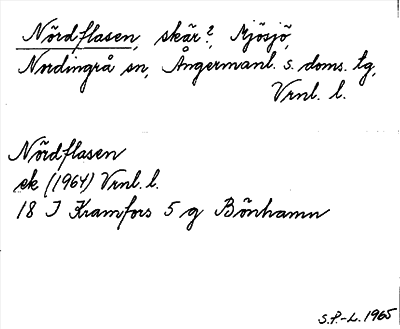 Nördflasen, skär?, Mjösjö,
Nordingrå sn, Ångermanl. s. doms. tg,
Vrnl. l.
Nördflasen
ek (1964) Vrnl. l.
18 I Kramfors 5 g Bönhamn
S.P.-L. 1965